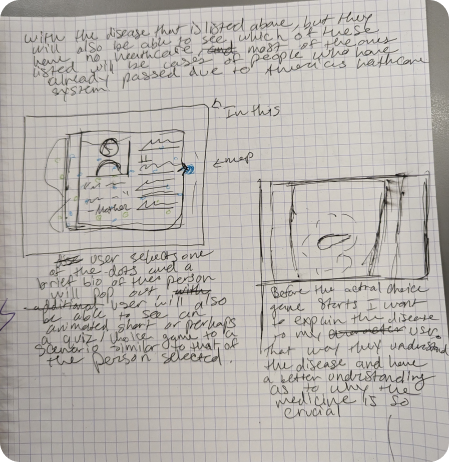 with the disease that is listed above, but they
will also be able to see which of these
have no healthcare, and most of the ones
listed will be cases of people who have
already passed due to Americas healthcare
system
In this
map
- Mother
user selects one
of the dots and a
brief bio of their person
will pop out with
additional user will also
be able to see an
animated short or perhaps
a quiz/choise game to a
scenario similar to that of
the person selected.
Before the actual choice
game starts I want
to explain the disease
to my user.
That way they understand
the disease and have
a better understanding
as to why the
medicine is so
crucial